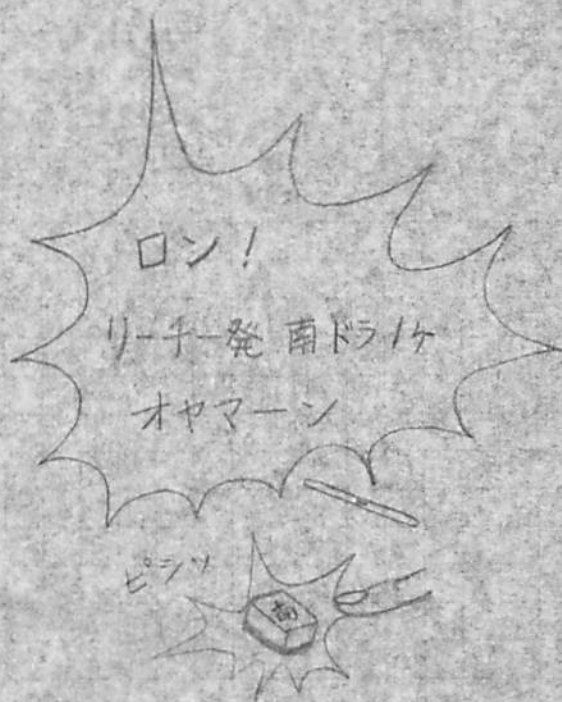 ロン!
リーチ一発 南ドラ1ヶ
オヤマーン
ピシッ
南